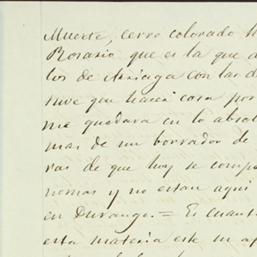 Muerte, cerro colorado
Rosario, que es la que a
los de Arriaga con las d
que hacer cosa por
me quedara en lo absol
mas de un borrador de
ras de que hoy se comp
nemas y no estan aqui
en Durango. = Es cuant
esta materia este m ap